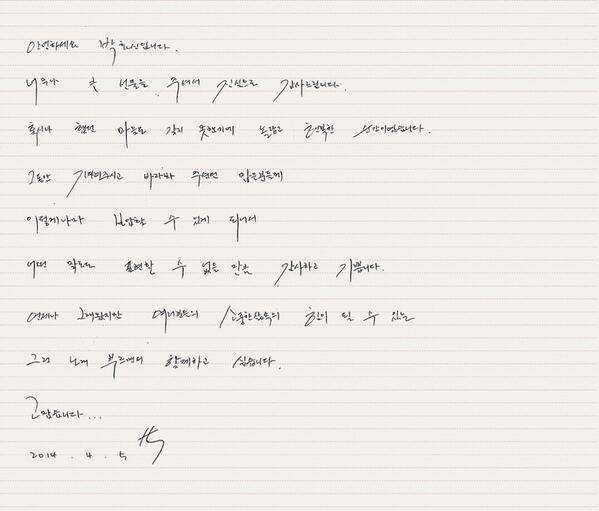 안녕하세요 박효신입니다.
너무나 큰 선물을 주셔서 진심으로 감사드립니다.
혹시나 했던 마음도 갖지 못했기에 놀랍고 행복한 순간이었습니다.
그동안 기다려주시고 바라봐 주셨던 많은분들께
이렇게나마 보답할 수 있게 되어서
어떤 말로도 표현할 수 없을 만큼 감사하고 기쁩니다.
언제나 그래왔지만 여러분들의 소중한삶속의 힘이 될 수 있는
그런 노래 부르면서 함께하고 싶습니다.
고맙습니다...
2014. 4. 5